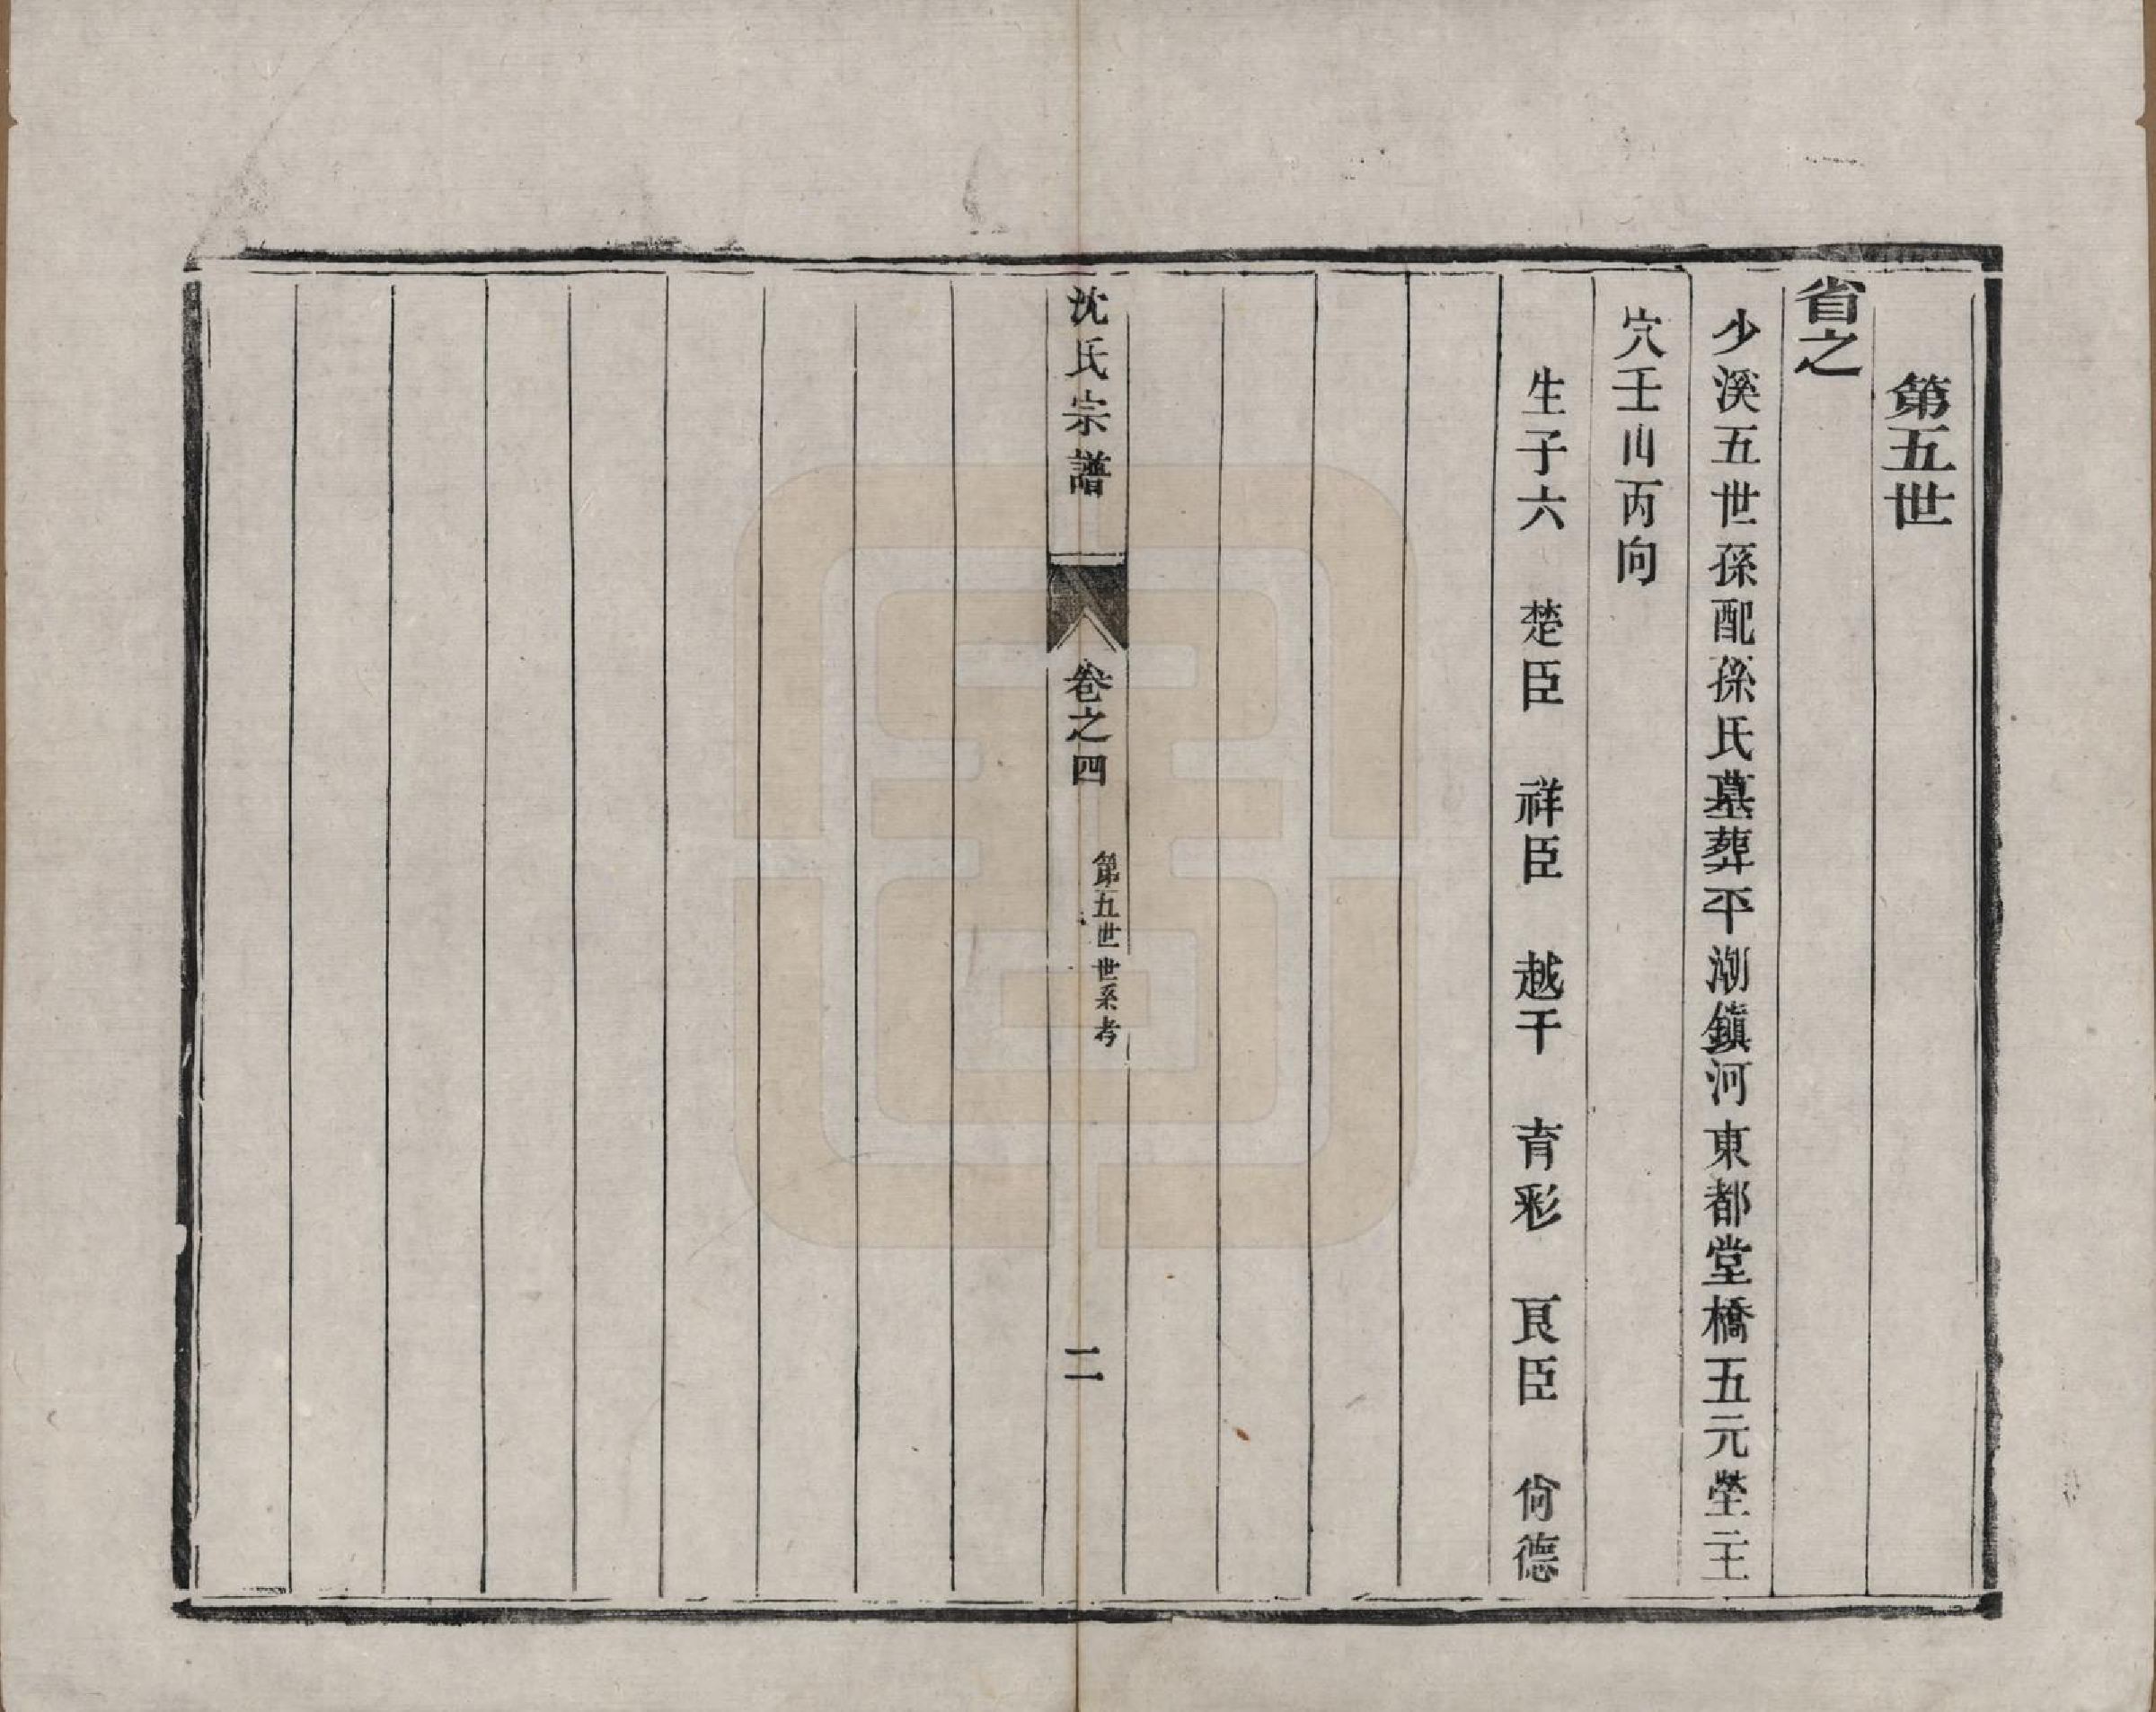 第五世
省之
少溪五世孫配孫氏墓葬平潮鎮河東都堂橋五元塋主
穴壬山丙向
生子六　楚臣　祥臣　越千　育彩　良臣　尙德
沈氏宗譜　卷之四　第五世世系考　二